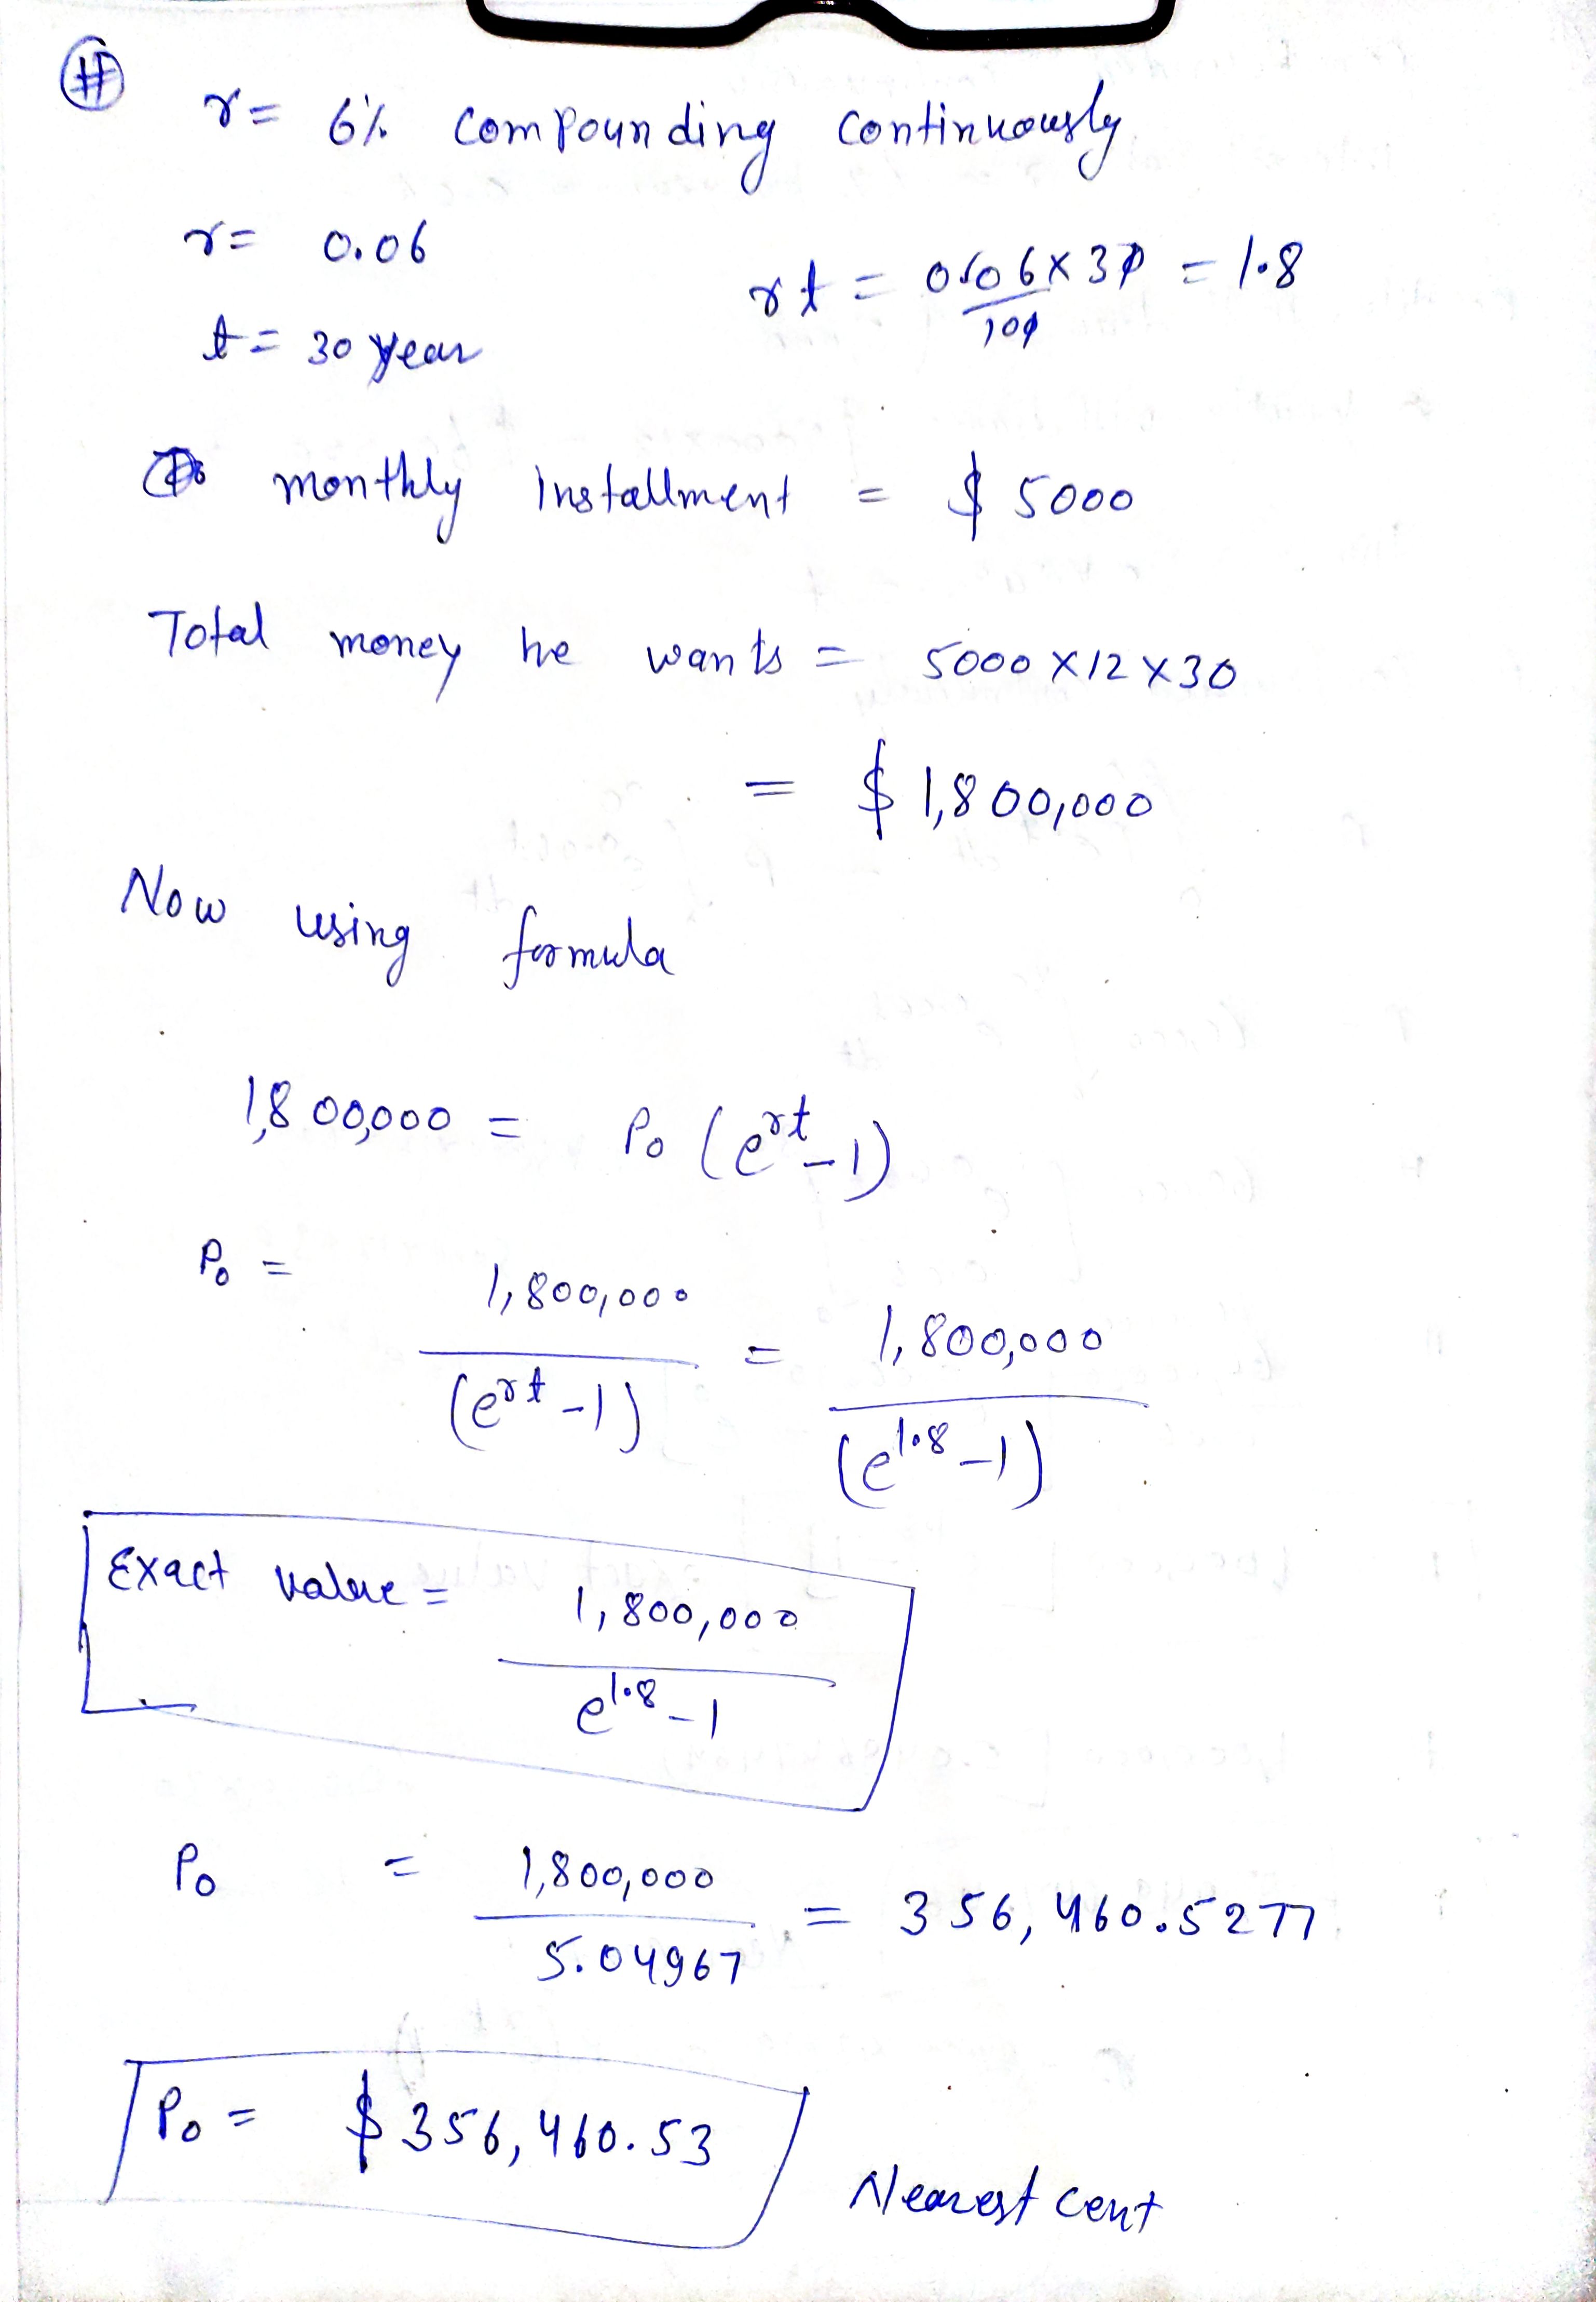 #
r = 6% compounding continuously
r = 0.06
rt = 0.06 × 30 / 100 = 1.8
t = 30 year
monthly Installment = $ 5000
Total money he wants = 5000 × 12 × 30
= $ 1,800,000
Now using formula
1,800,000 = P₀ (e^rt - 1)
P₀ = 1,800,000 / (e^rt - 1) = 1,800,000 / (e^1.8 - 1)
Exact value = 1,800,000 / e^1.8 - 1
P₀ = 1,800,000 / 5.04967 = 356,460.5277
P₀ = $ 356,460.53
Nearest cent